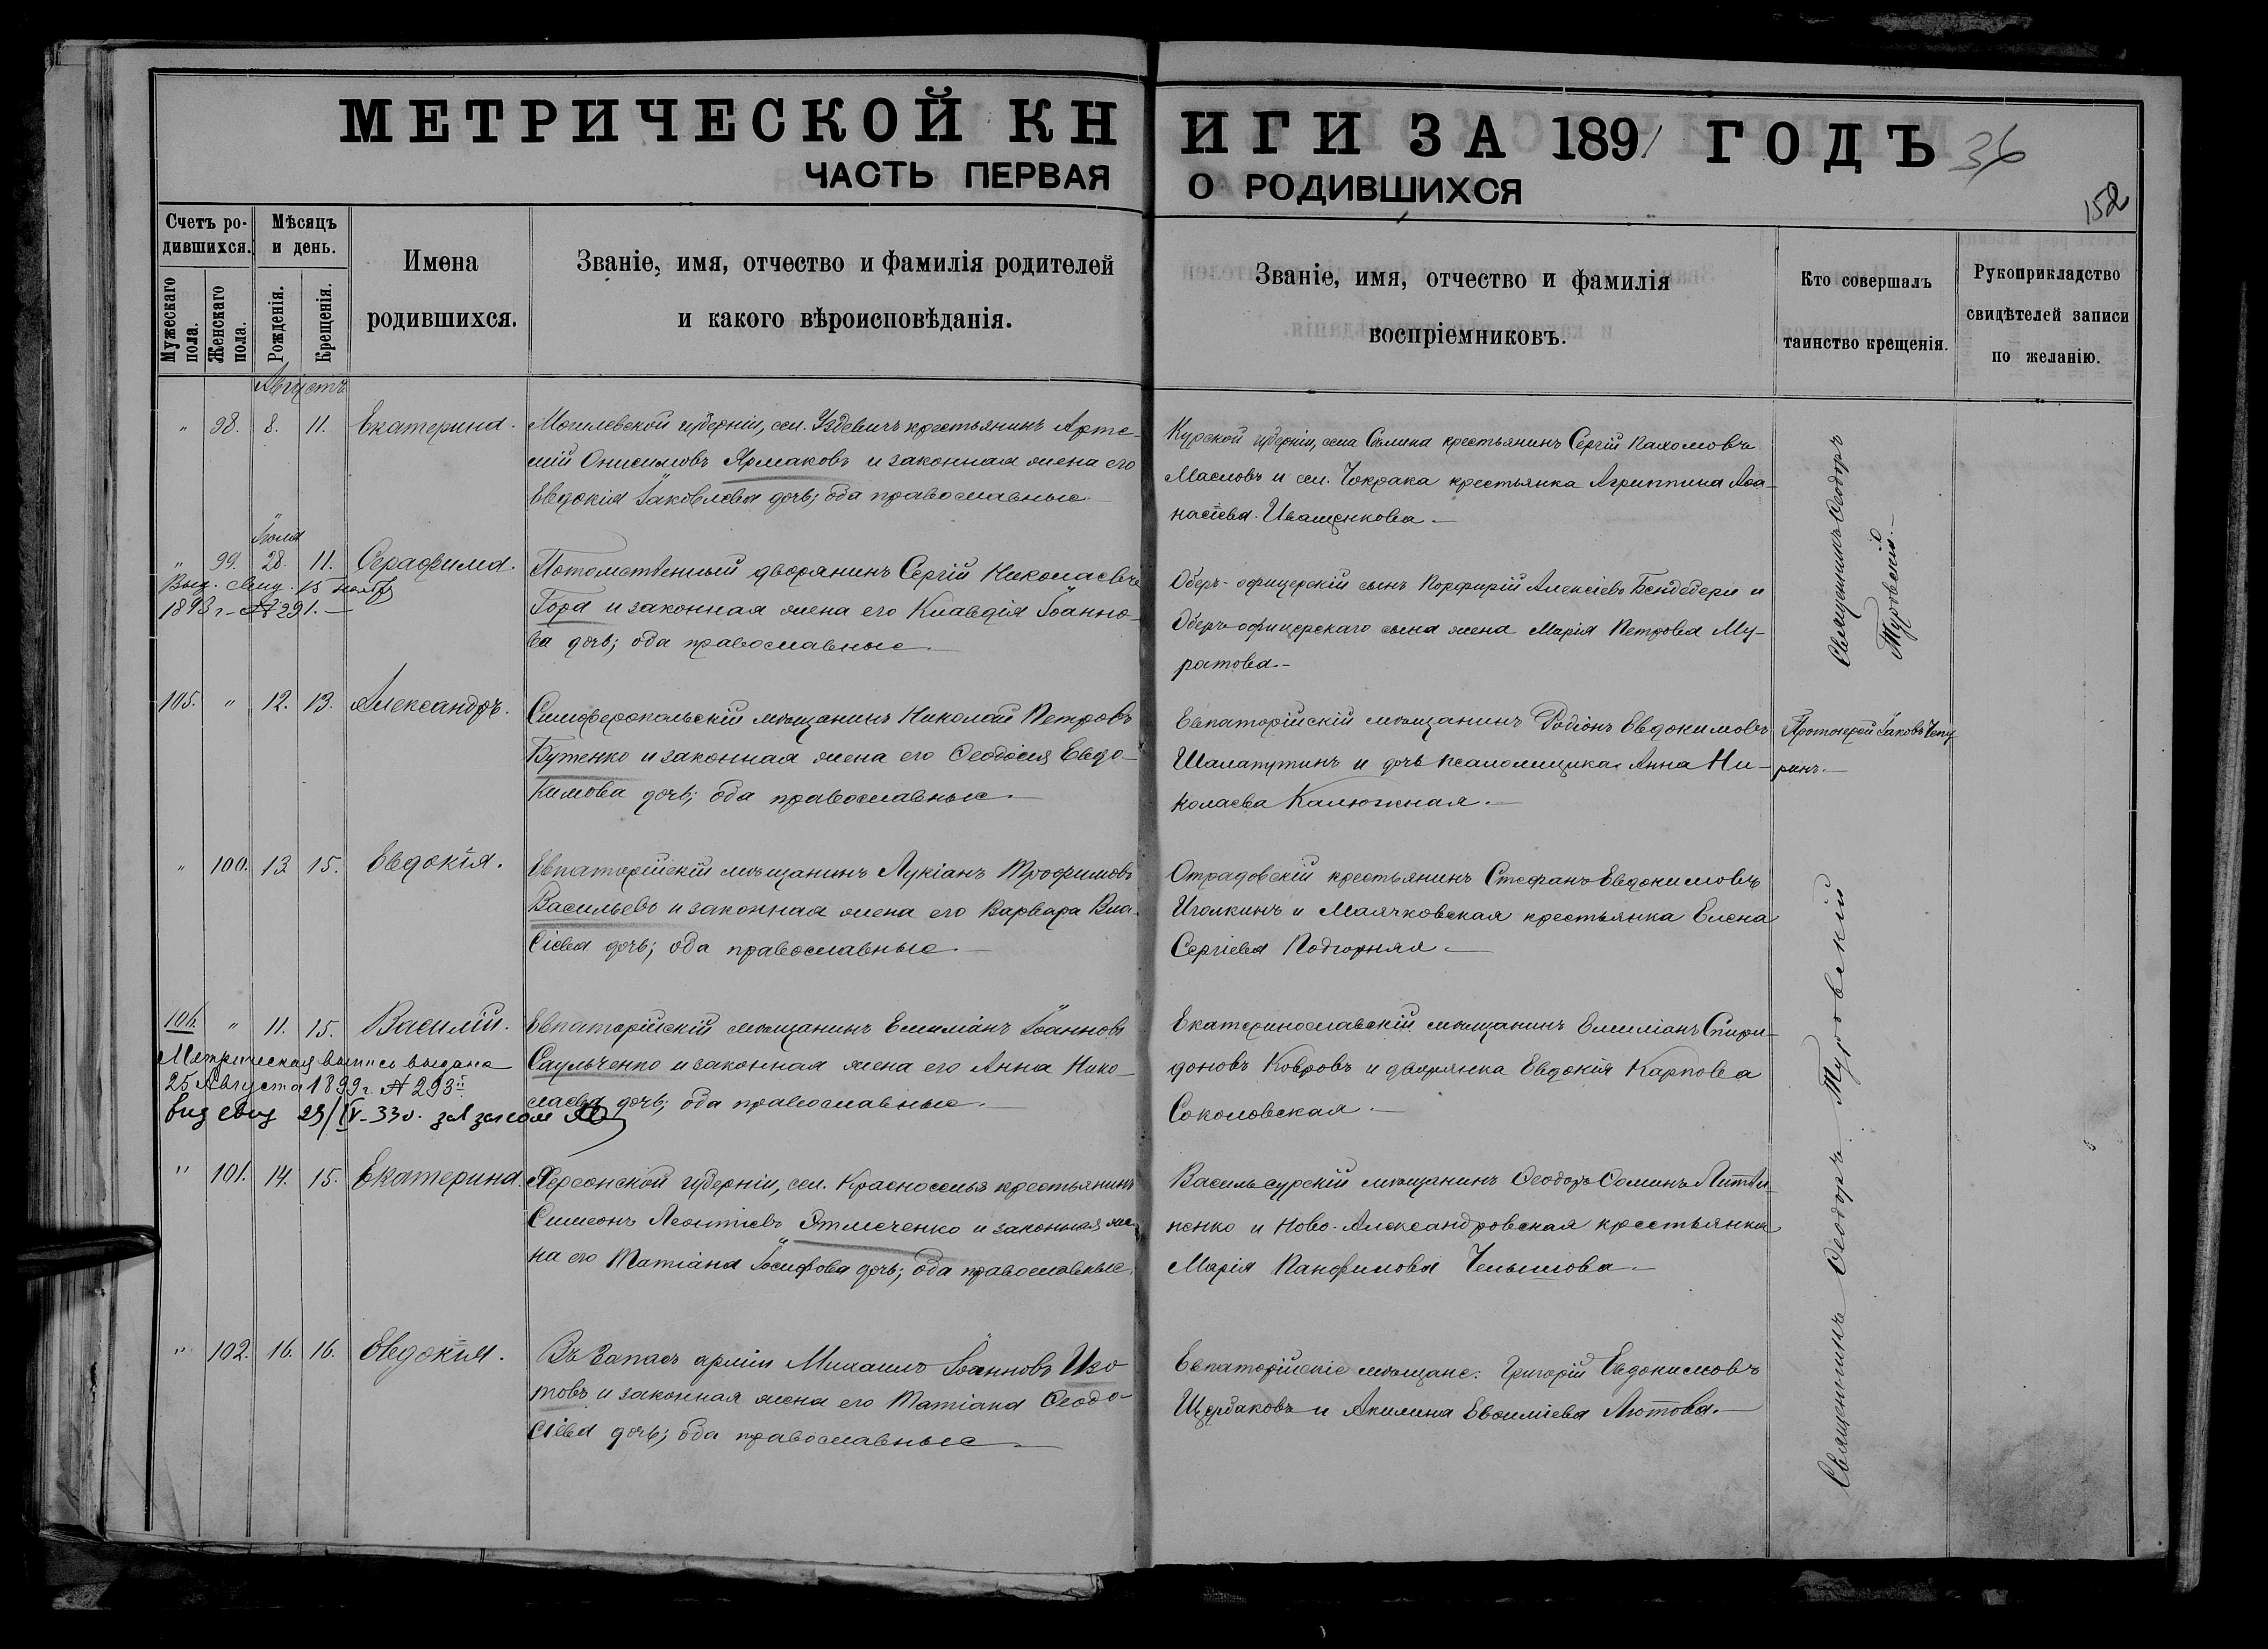 МЕТРИЧЕСКОЙ КНИГИ ЗА 1891 ГОДЪ
36
152
ЧАСТЬ ПЕРВАЯ О РОДИВШИХСЯ
Счетъ ро-
дившихся.
Мужескаго
пола.
Женскаго
пола.
Мѣсяцъ
и день.
Рожденія.
Крещенія.
Имена
родившихся.
Званіе, имя, отчество и фамилія родителей
и какого вѣроисповѣданія.
Званіе, имя, отчество и фамилія
воспріемниковъ.
Кто совершалъ
таинство крещенія.
Рукоприкладство
свидѣтелей записи
по желанію.
Августъ
" 98. 8. 11. Екатерина.
Могилевской губерніи, сел. крестьянинъ Арте-
мій Онисимовъ Ярмаковъ и законная жена его
Евдокія Іаковлева дочь; оба православные.
Курской губерніи, села крестьянинъ Сергій Пахомовъ
Масловъ и сел. Чокрака крестьянка Агриппина Аѳа-
насіева Иващенкова.
Священникъ Ѳеодоръ
Туровскій.
Іюля
" 99. 28. 11. Серафима.
Выд. свид. 15 ноября
1893 г. № 291.
Потомственный дворянинъ Сергій Николаевъ
Гора и законная жена его Клавдія Іоанно-
ва дочь; оба православные.
Оберъ-офицерскій сынъ Порфирій Алексіевъ Бендебери и
Оберъ-офицерскаго сына жена Марія Петрова Му-
ратова.
105. " 12. 13. Александръ.
Симферопольскій мѣщанинъ Николай Петровъ
Бутенко и законная жена его Ѳеодосія Евдо-
кимова дочь; оба православные.
Евпаторійскій мѣщанинъ Родіонъ Евдокимовъ
Шалапутинъ и дочь псаломщика Анна Ни-
колаева Калюжная.
Протоіерей Іаковъ Чепу
ринъ.
" 100. 13 15. Евдокія.
Евпаторійскій мѣщанинъ Лукіанъ Трофимовъ
Васильевъ и законная жена его Варвара Вла-
сіева дочь; оба православные.
Отрадовскій крестьянинъ Стефанъ Евдокимовъ
Иголкинъ и Маячковская крестьянка Елена
Сергіева Подгорняя.
Священникъ Ѳеодоръ Туровскій
106. " 11. 15. Василій.
Метрическая выпись выдана
25 Августа 1899 г. № 293
Евпаторійскій мѣщанинъ Емиліанъ Іоанновъ
Саульченко и законная жена его Анна Нико-
лаева дочь; оба православные.
Екатеринославскій мѣщанинъ Емиліанъ Спири-
доновъ Ковровъ и дворянка Евдокія Карпова
Соколовская.
" 101. 14. 15. Екатерина.
Херсонской губерніи, сел. Красноселья крестьянинъ
Симеонъ Леонтіевъ и законная же-
на его Татіана Іосифова дочь; оба православные.
Васильсурскій мѣщанинъ Ѳеодоръ Ѳоминъ Литви-
ненко и Ново-Александровская крестьянка
Марія Панфилова Челышова.
" 102. 16. 16. Евдокія.
Въ запасѣ арміи Михаилъ Іоанновъ Изо
товъ и законная жена его Татіана Ѳеодо-
сіева дочь; оба православные.
Евпаторійскіе мѣщане: Григорій Евдокимовъ
Щербаковъ и Акилина Евѳиміева Лютова.